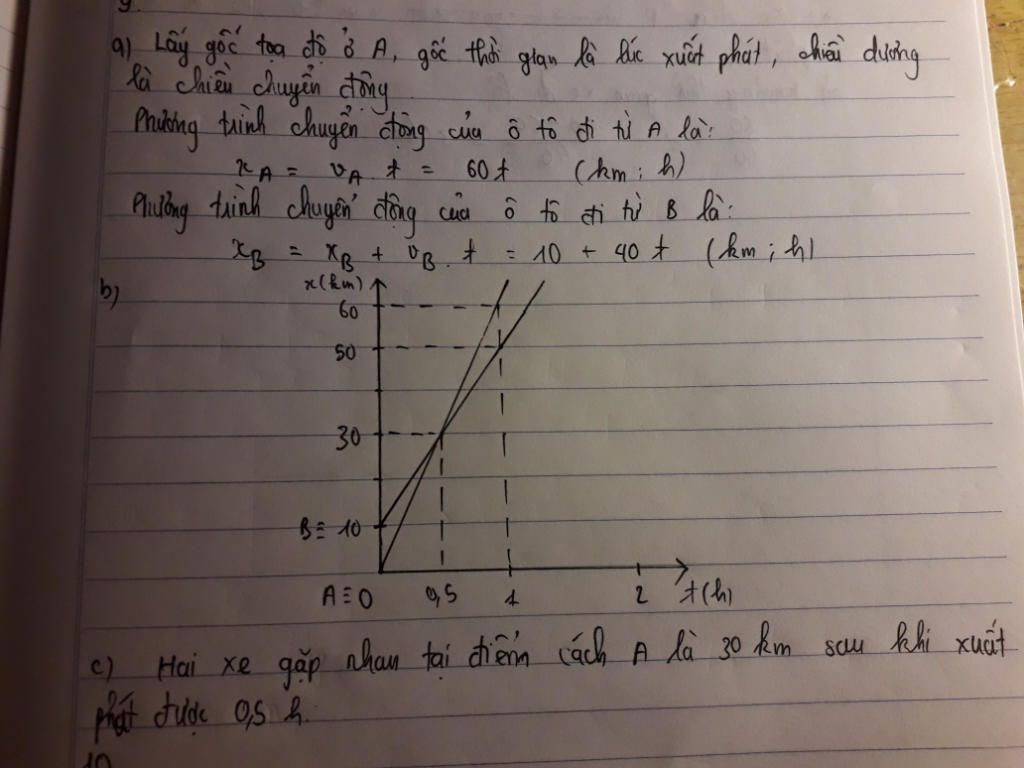 9.
a) Lấy gốc tọa độ ở A, gốc thời gian là lúc xuất phát, chiều dương
là chiều chuyển động
Phương trình chuyển động của ô tô đi từ A là:
x_A = v_A . t = 60t (km ; h)
Phương trình chuyển động của ô tô đi từ B là:
x_B = x_B + v_B . t = 10 + 40 t (km ; h)
b)
x(km)
60
50
30
B ≡ 10
A ≡ 0 0,5 1 2 t(h)
c) Hai xe gặp nhau tại điểm cách A là 30 km sau khi xuất
phát được 0,5 h.
10